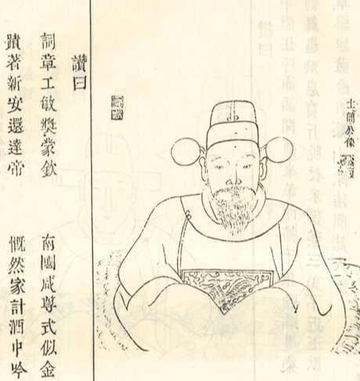 士簡公像
讚曰
詞章工敏獎蒙欽　南國咸尊式似金
蹟著新安還達帝　慨然家計酒中吟